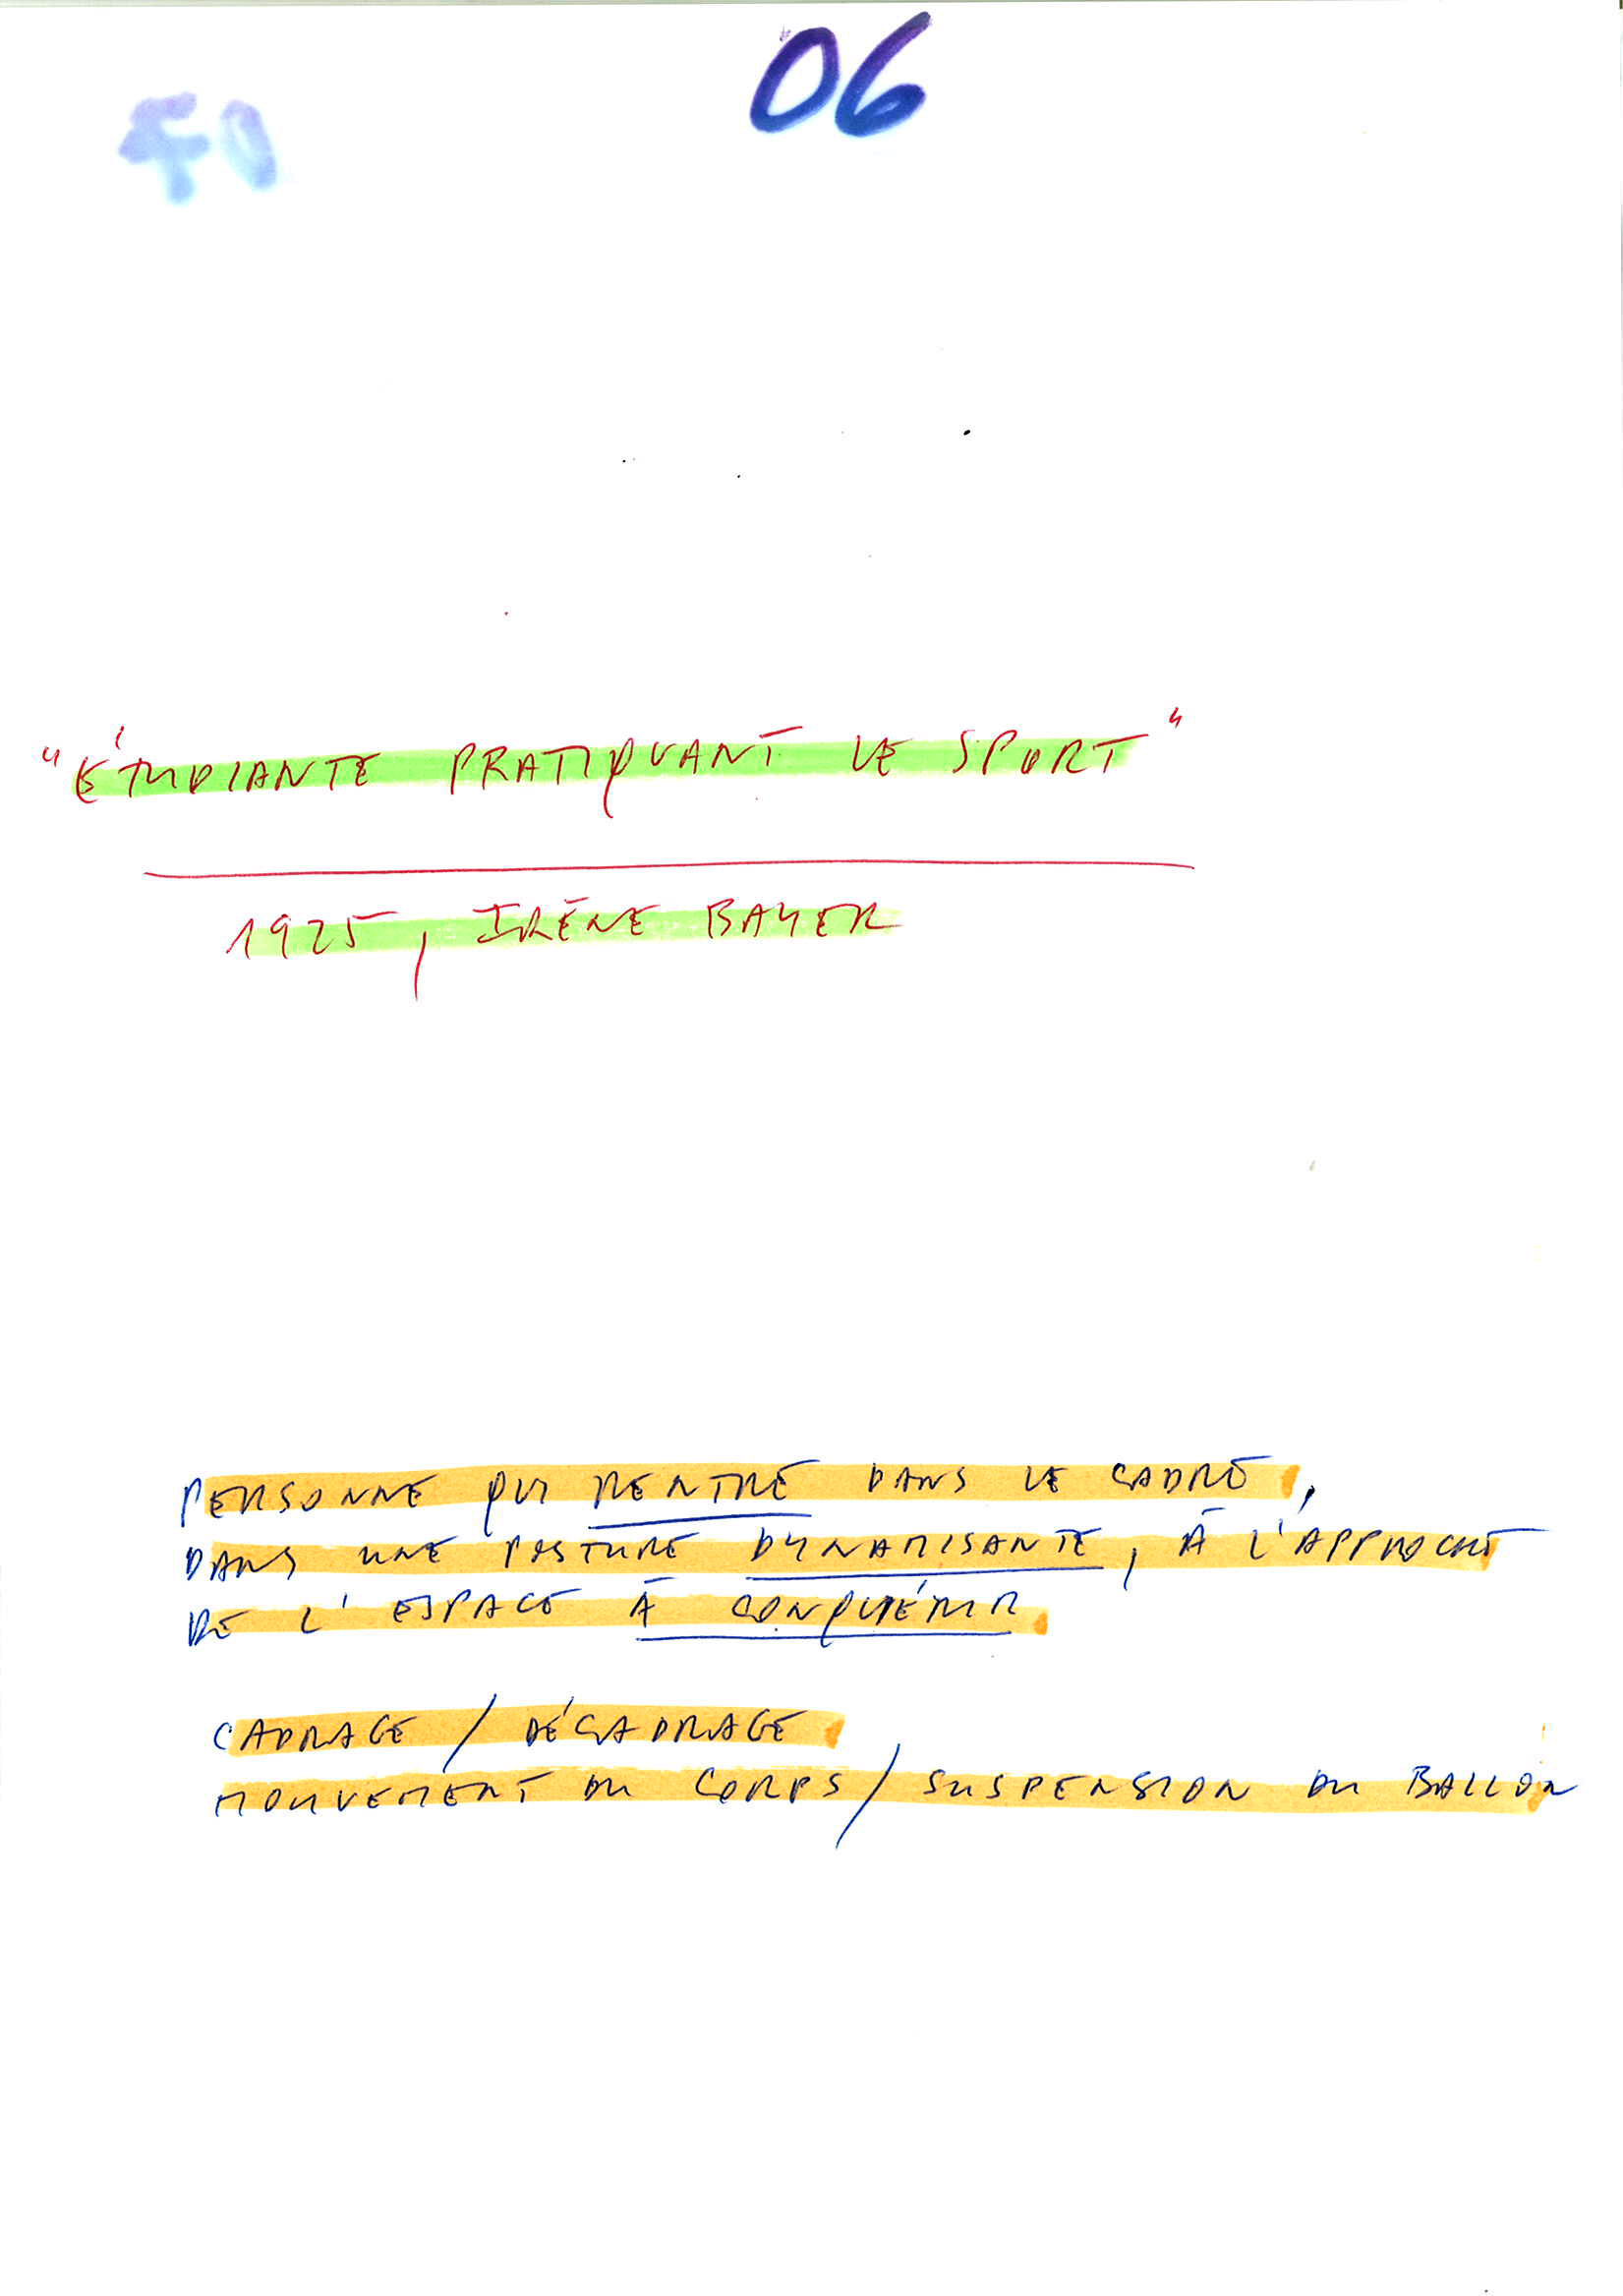 06
"ÉTUDIANTE PRATIQUANT LE SPORT"
1925, IRÈNE BAYER
PERSONNE QUI RENTRE DANS LE CADRE,
DANS UNE POSTURE DYNAMISANTE, À L'APPROCHE
DE L'ESPACE À CONQUÉRIR
CADRAGE / DÉCADRAGE
MOUVEMENT DU CORPS / SUSPENSION DU BALLON